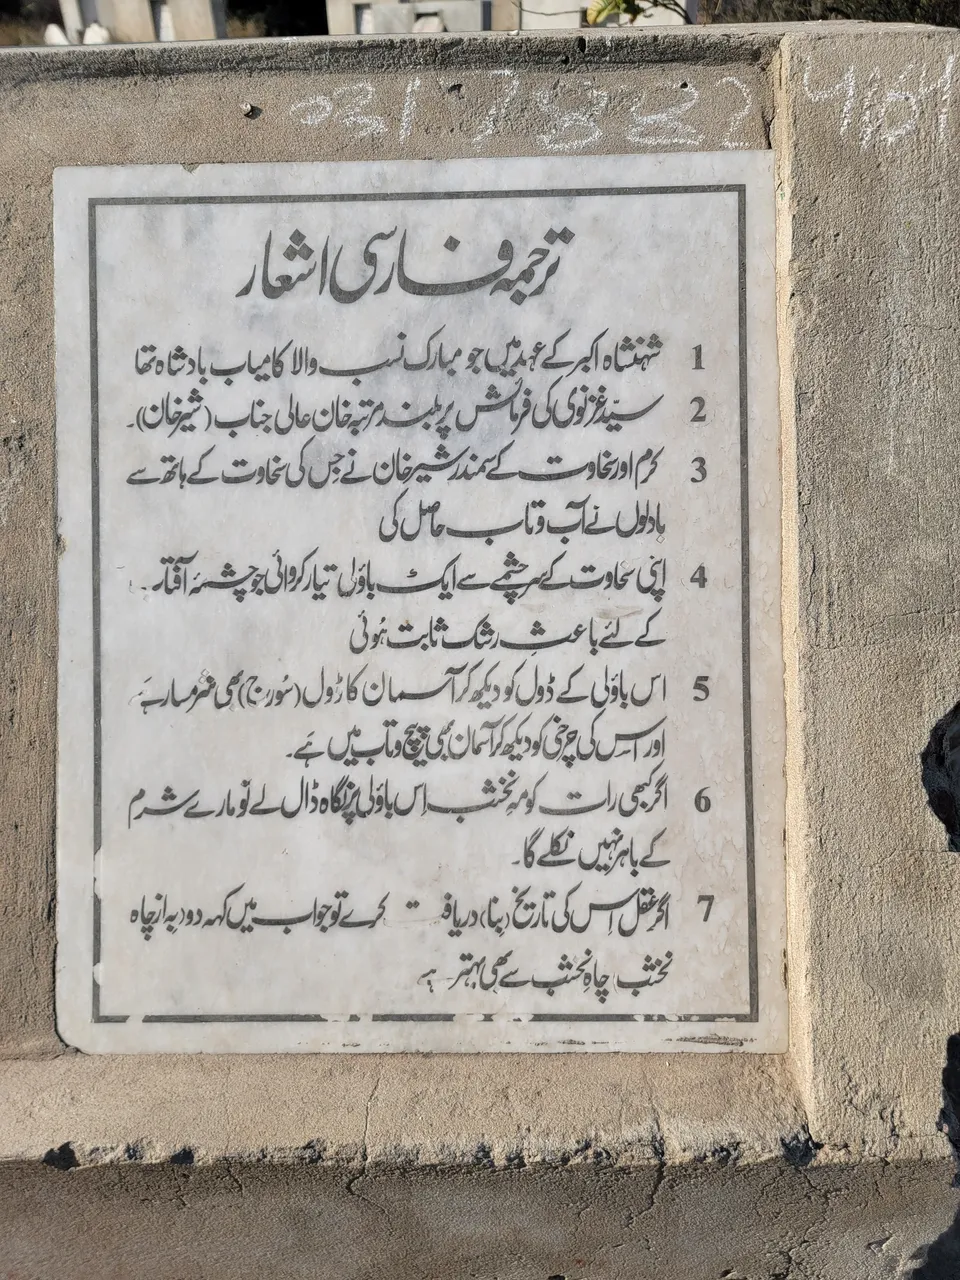 031 78882 464
ترجمہ فارسی اشعار
1 شہنشاہ اکبر کے عہد میں جو مبارک نسب والا کامیاب بادشاہ تھا
2 سیّد غزنوی کی فرمائش پر بلند مرتبہ خان عالی جناب (شیر خان)۔
3 کرم اور سخاوت کے سمندر شیر خان نے جس کی سخاوت کے ہاتھ سے
بادلوں نے آب و تاب حاصل کی
4 اپنی سخاوت کے سر چشمے سے ایک باؤلی تیار کروائی جو چشمۂ آفتاب
کے لئے باعث رشک ثابت ہوئی
5 اس باؤلی کے ڈول کو دیکھ کر آسمان کا ڑول (سُورج) بھی شرمسار ہے
اور اس کی چرخی کو دیکھ کر آسمان بھی پیچ و تاب میں ہے۔
6 اگر کبھی رات کو مہِ نخشب اِس باؤلی پر نگاہ ڈال لے تو مارے شرم
کے باہر نہیں نکلے گا۔
7 اگر عقل اِس کی تاریخ (بِنا) دریافت کرے تو جواب میں کہہ دو (بہ از چاہ
نخشب) چاہِ نخشب سے بھی بہتر ہے